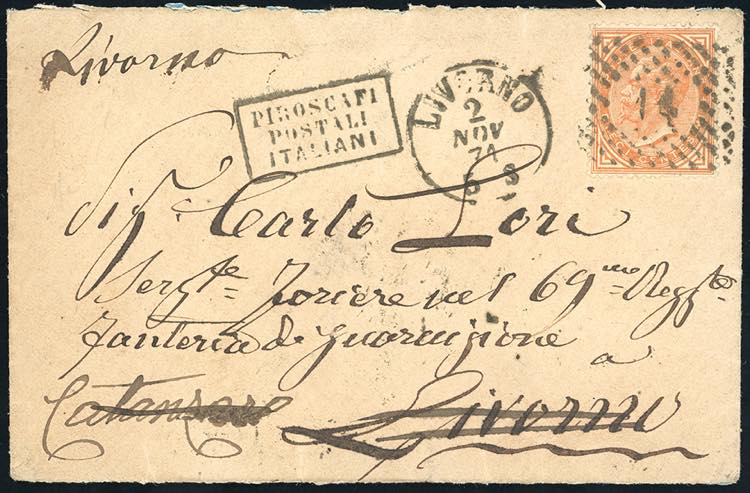 Livorno
PIROSCAFI
POSTALI
ITALIANI
LIVORNO
2
NOV
71
3 S
14
Sigr. Carlo Lori
Sergte Foriere nel 69mo Reggto
fanteria di guarnigione
a
Catanzaro Livorno